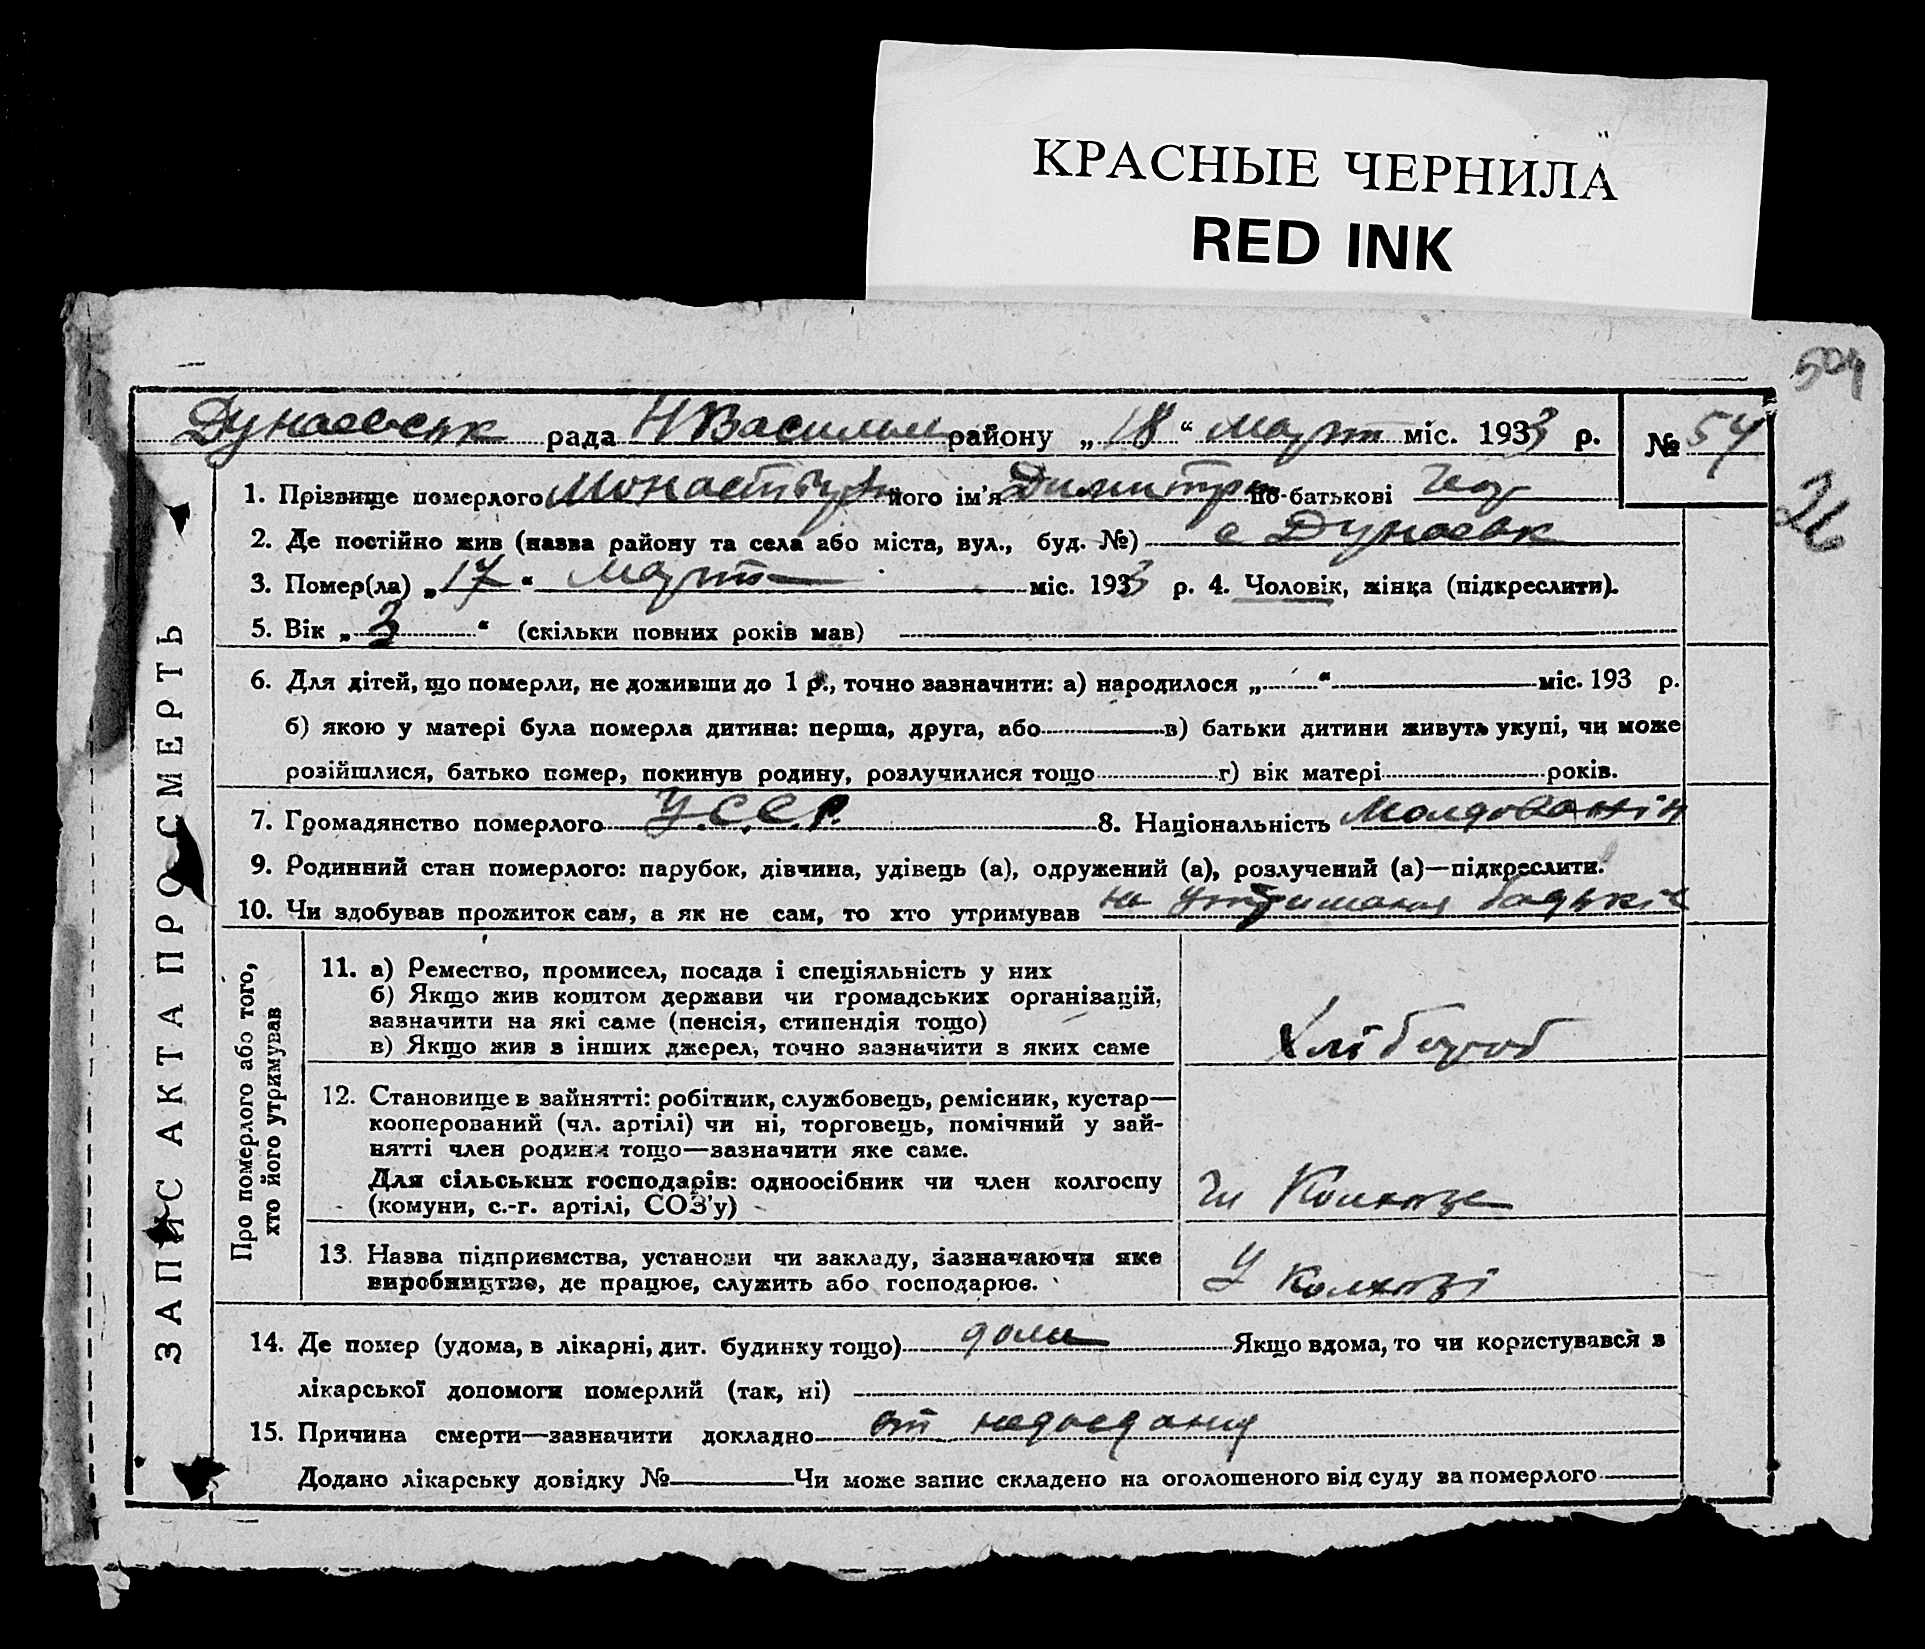 КРАСНЫЕ ЧЕРНИЛА
RED INK
504
Дунаевськ рада Н Васильев району „ 18 “ март міс. 1933 р. № 54
26
1. Прізвище померлого його ім'я Димитри по-батькові
2. Де постійно жив (назва району та села або міста, вул., буд. №) с Дунаевк
3. Помер(ла) „ 17 “ март міс. 1933 р. 4. Чоловік, жінка (підкреслити).
5. Вік „ 3 “ (скільки повних років мав)
6. Для дітей, що померли, не доживши до 1 р., точно зазначити: а) народилося „ “ міс. 193 р.
б) якою у матері була померла дитина: перша, друга, або в) батьки дитини живуть укупі, чи може
розійшлися, батько помер, покинув родину, розлучилися тощо г) вік матері років.
7. Громадянство померлого У.С.С.Р. 8. Національність Молдованін
9. Родинний стан померлого: парубок, дівчина, удівець (а), одружений (а), розлучений (а)—підкреслити.
10. Чи здобував прожиток сам, а як не сам, то хто утримував на утримания батьків
ЗАПИС АКТА ПРО СМЕРТЬ
Про померлого або того,
хто його утримував
11. а) Ремество, промисел, посада і спеціяльність у них
б) Якщо жив коштом держави чи громадських організацій,
зазначити на які саме (пенсія, стипендія тощо)
в) Якщо жив з інших джерел, точно зазначити з яких саме
Хлібороб
12. Становище в зайнятті: робітник, службовець, ремісник, кустар—
кооперований (чл. артілі) чи ні, торговець, помічний у зай-
нятті член родини тощо—зазначити яке саме.
Для сільських господарів: одноосібник чи член колгоспу
(комуни, с.-г. артілі, СОЗ'у)
Чл Колхоза
13. Назва підприємства, установи чи закладу, зазначаючи яке
виробництво, де працює, служить або господарює.
У колхозі
14. Де помер (удома, в лікарні, дит. будинку тощо) дома Якщо вдома, то чи користувався в
лікарської допомоги померлий (так, ні)
15. Причина смерти—зазначити докладно от недоедания
Додано лікарську довідку № Чи може запис складено на оголошеного від суду за померлого